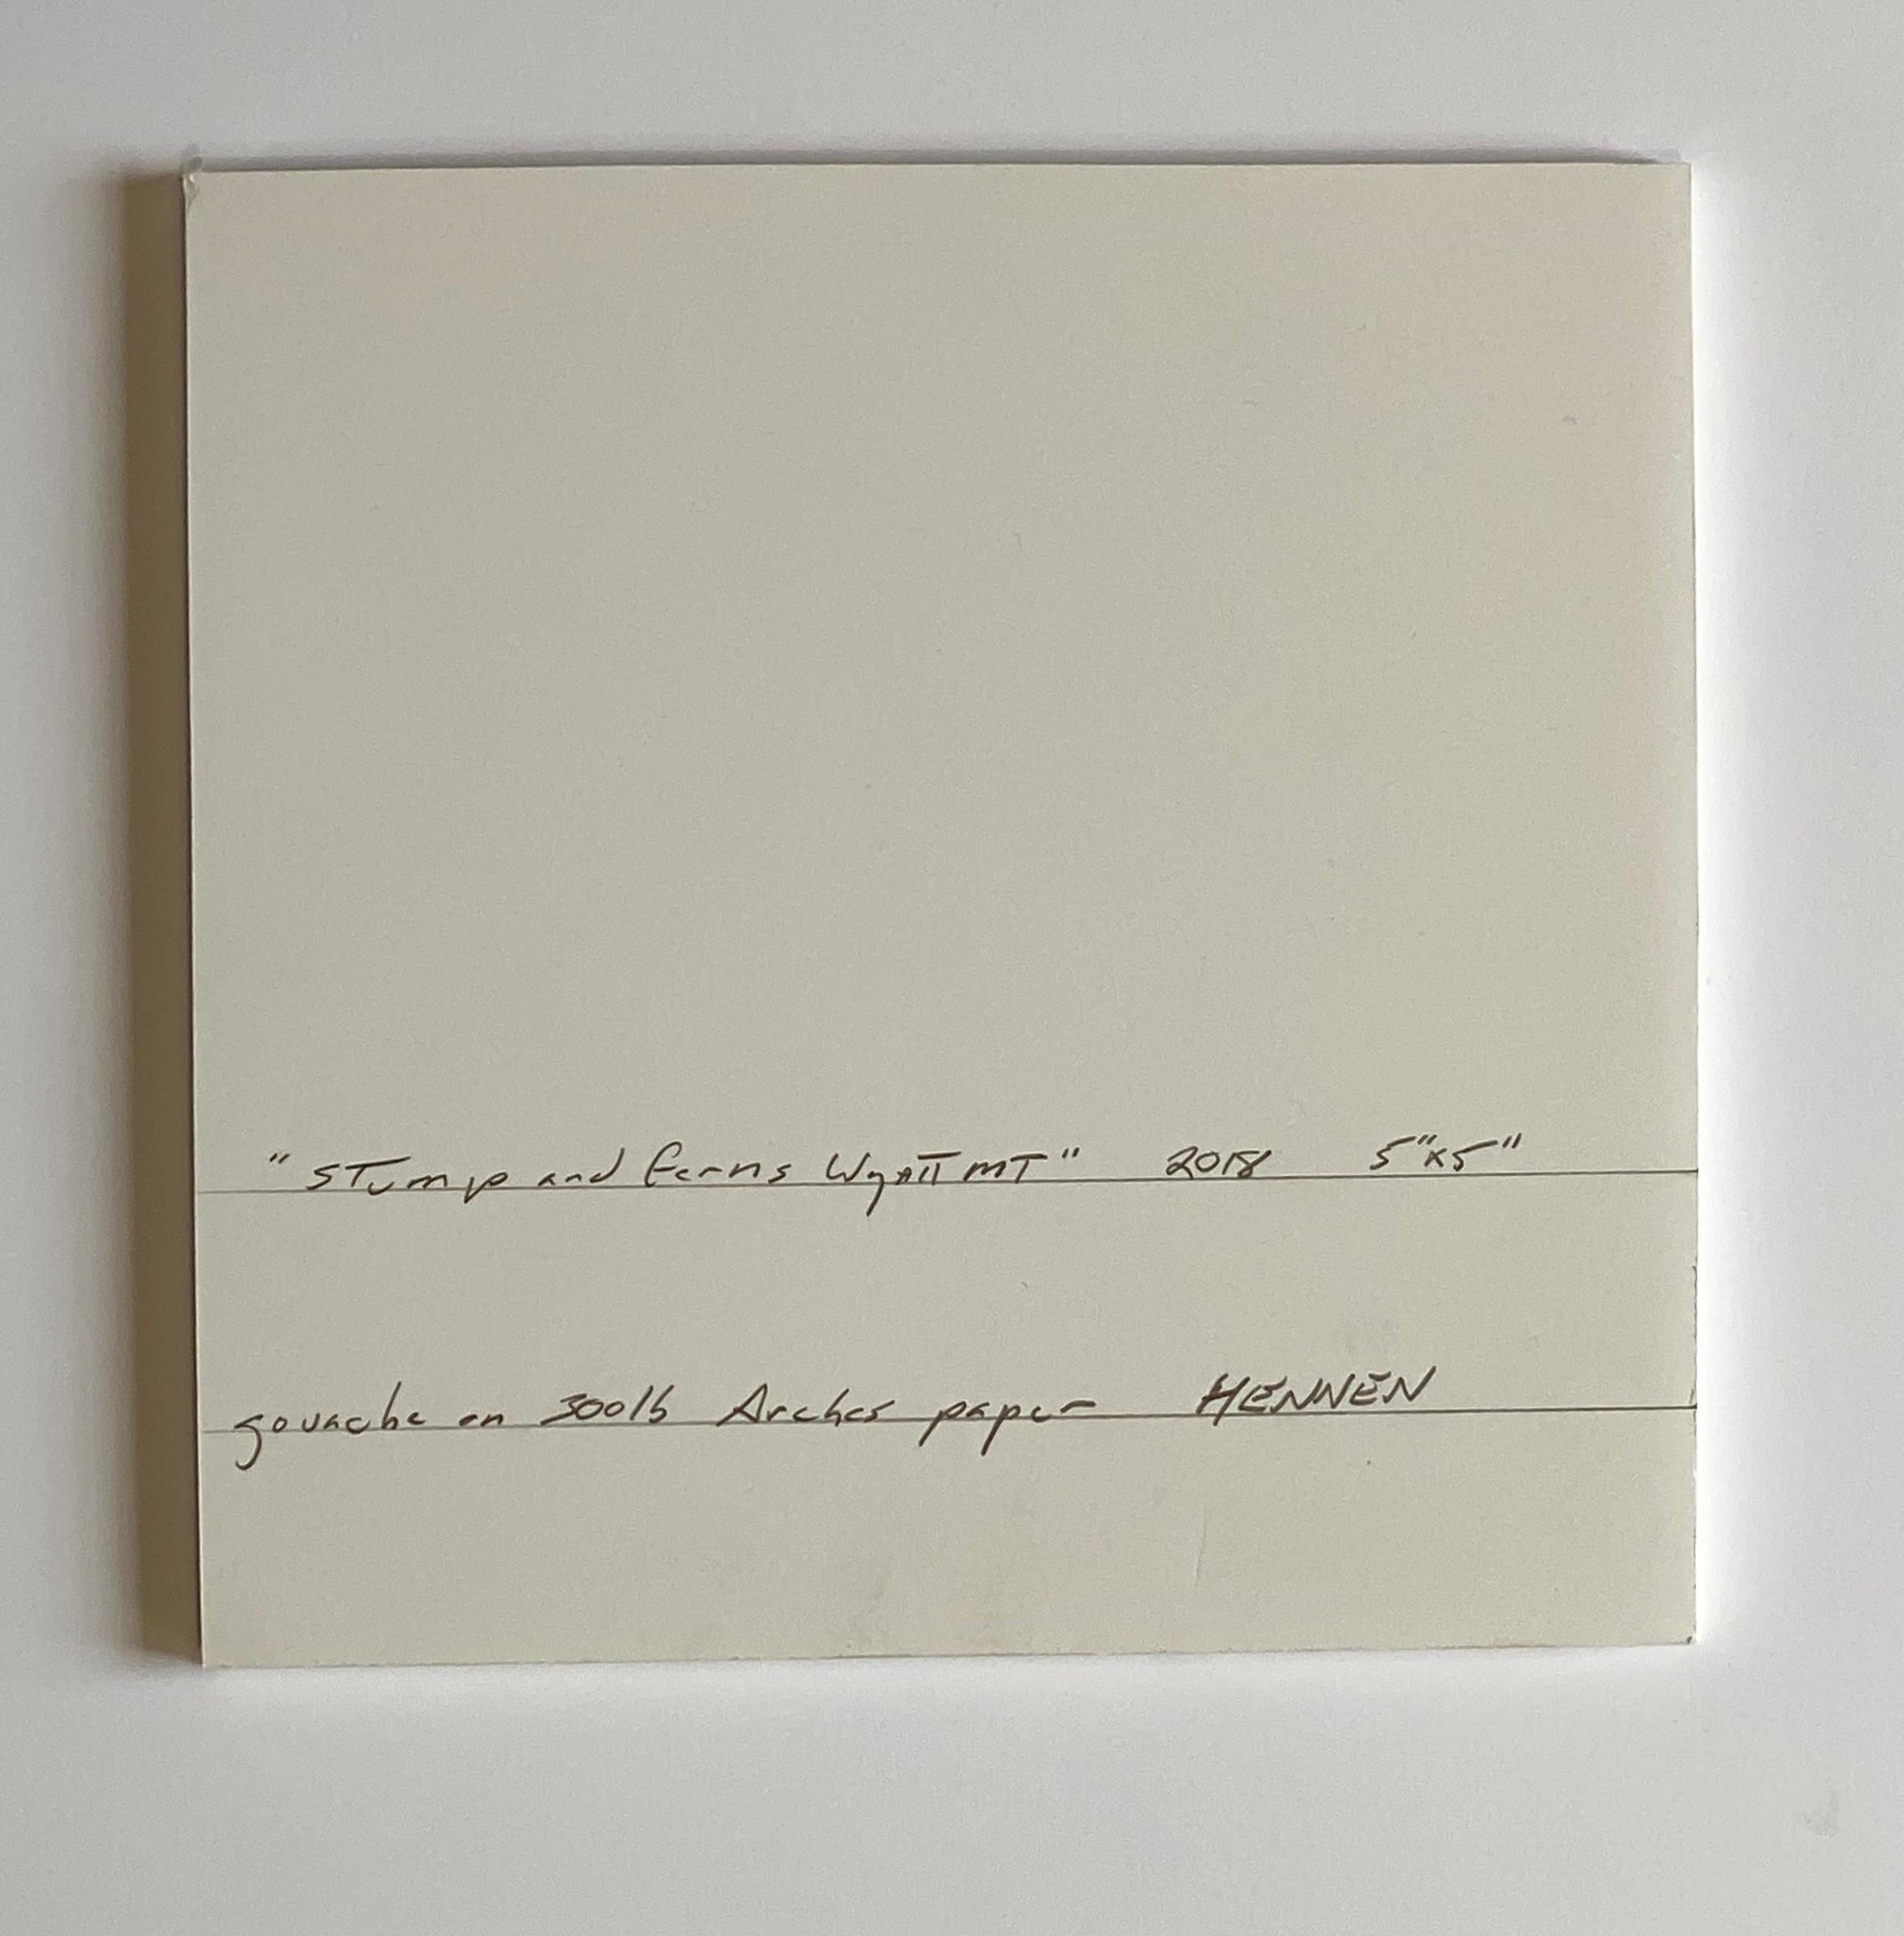 "Stump and ferns Wyatt MT" 2018 5"x5"
gouache on 300lb Arches paper HENNEN